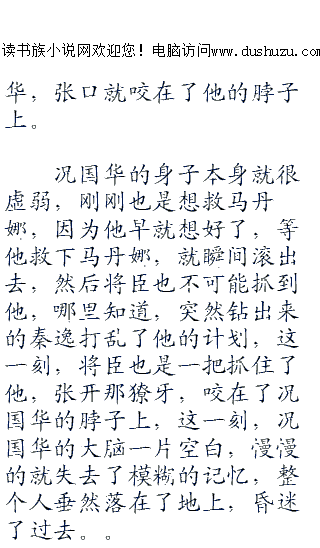 读书族小说网欢迎您！电脑访问www.dushuzu.com
华，张口就咬在了他的脖子
上。
况国华的身子本身就很
虚弱，刚刚也是想救马丹
娜，因为他早就想好了，等
他救下马丹娜，就瞬间滚出
去，然后将臣也不可能抓到
他，哪里知道，突然钻出来
的秦逸打乱了他的计划，这
一刻，将臣也是一把抓住了
他，张开那獠牙，咬在了况
国华的脖子上，这一刻，况
国华的大脑一片空白，慢慢
的就失去了模糊的记忆，整
个人垂然落在了地上，昏迷
了过去。。